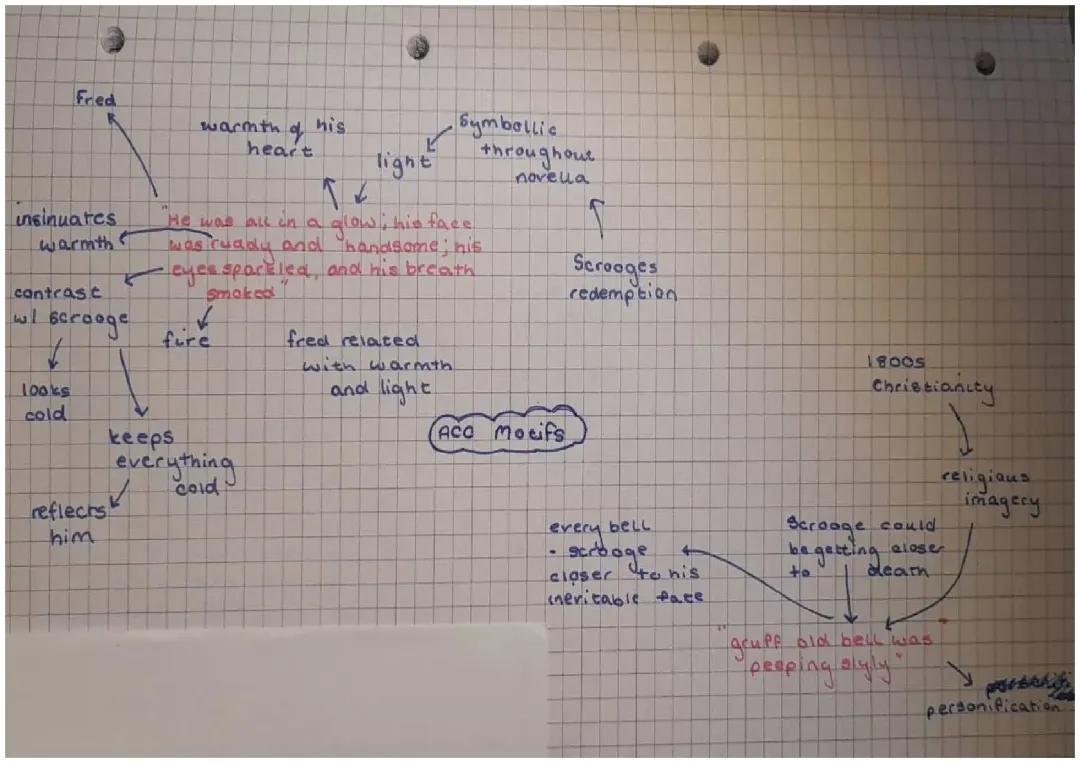 Fred
warmth of his
heart
light
Symbollic
throughout
novella
insinuates
warmth
"He was all in a glow; his face
was ruady and handsome; his
eyes sparkled, and his breath
smoked"
contrast
w/ scrooge
looks
cold
keeps
everything
cold
reflects
him
fire
fred related
with warmth
and light
Scrooges
redemption
ACC Motifs
1800s
Christianity
religious
imagery
every bell
• scrooge
closer to his
inevitable fate
Scrooge could
be getting closer
to death
"gruff old bell was"
peeping slyly"
personification